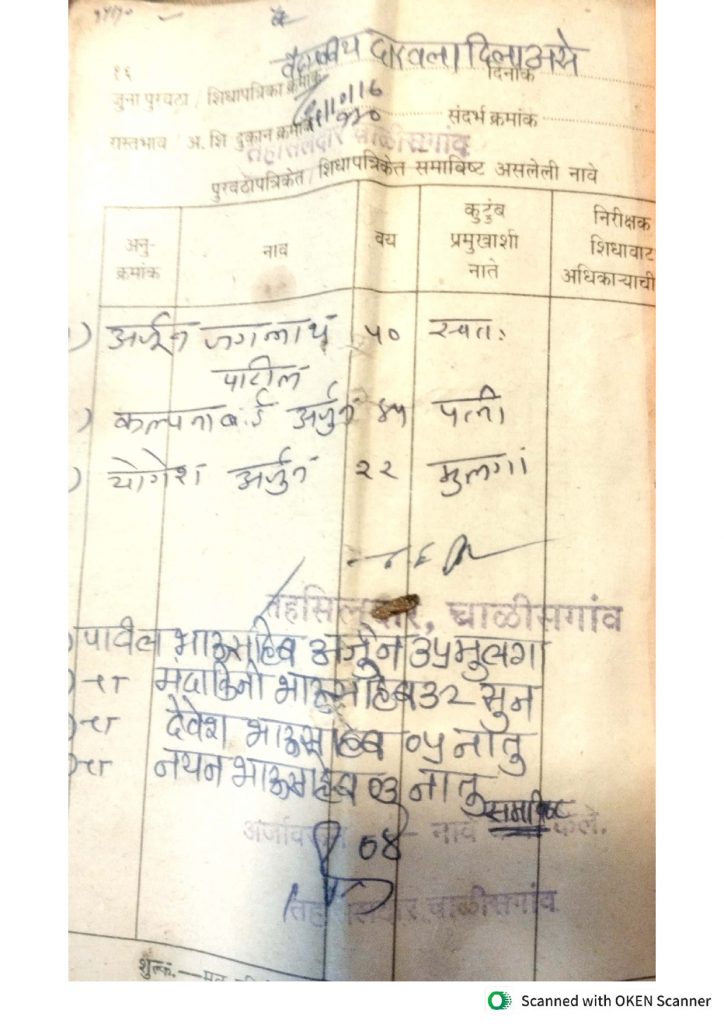 वैद्यकीय दाखला दिला असे
१६ दिनांक
जुना पुरवठा / शिधापत्रिका क्रमांक
संदर्भ क्रमांक
रास्तभाव / अ. शि दुकान क्रमांक
तहसिलदार चाळीसगांव
पुरवठापत्रिकेत / शिधापत्रिकेत समाविष्ट असलेली नावे
अनु-क्रमांक नाव वय कुटुंब प्रमुखाशी नाते निरीक्षक शिधावाट अधिकाऱ्याची
) अर्जुन जगन्नाथ ५० स्वतः
पाटील
) कल्पनाबाई अर्जुन ४५ पत्नी
) योगेश अर्जुन २२ मुलगा
तहसिलदार, चाळीसगांव
) पाटील भाऊसाहेब अर्जुन ३५ मुलगा
) —॥ मंदाकिनी भाऊसाहेब ३२ सुन
) —॥ देवेश भाऊसाहेब ०५ नातु
) —॥ नयन भाऊसाहेब ०३ नातु
समाविष्ट
अर्जावरून ०४ नावे केले.
तहसिलदार चाळीसगांव
शुल्क.—
Scanned with OKEN Scanner